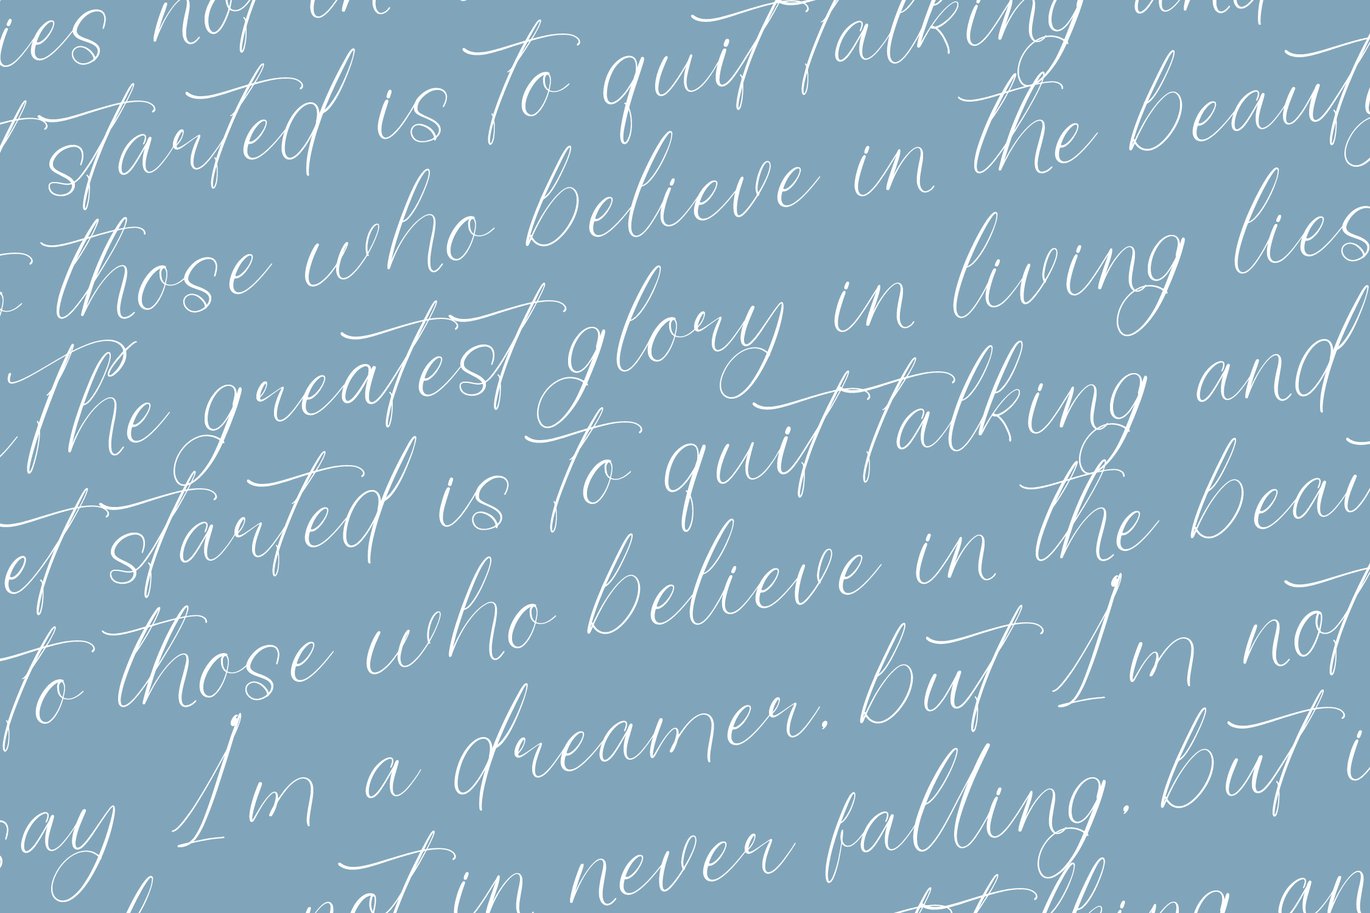 ies not in
t started is to quit talking and
those who believe in the beauty
The greatest glory in living lies
et started is to quit talking and
to those who believe in the beau
say I'm a dreamer. but I'm not
not in never falling. but i
talking an